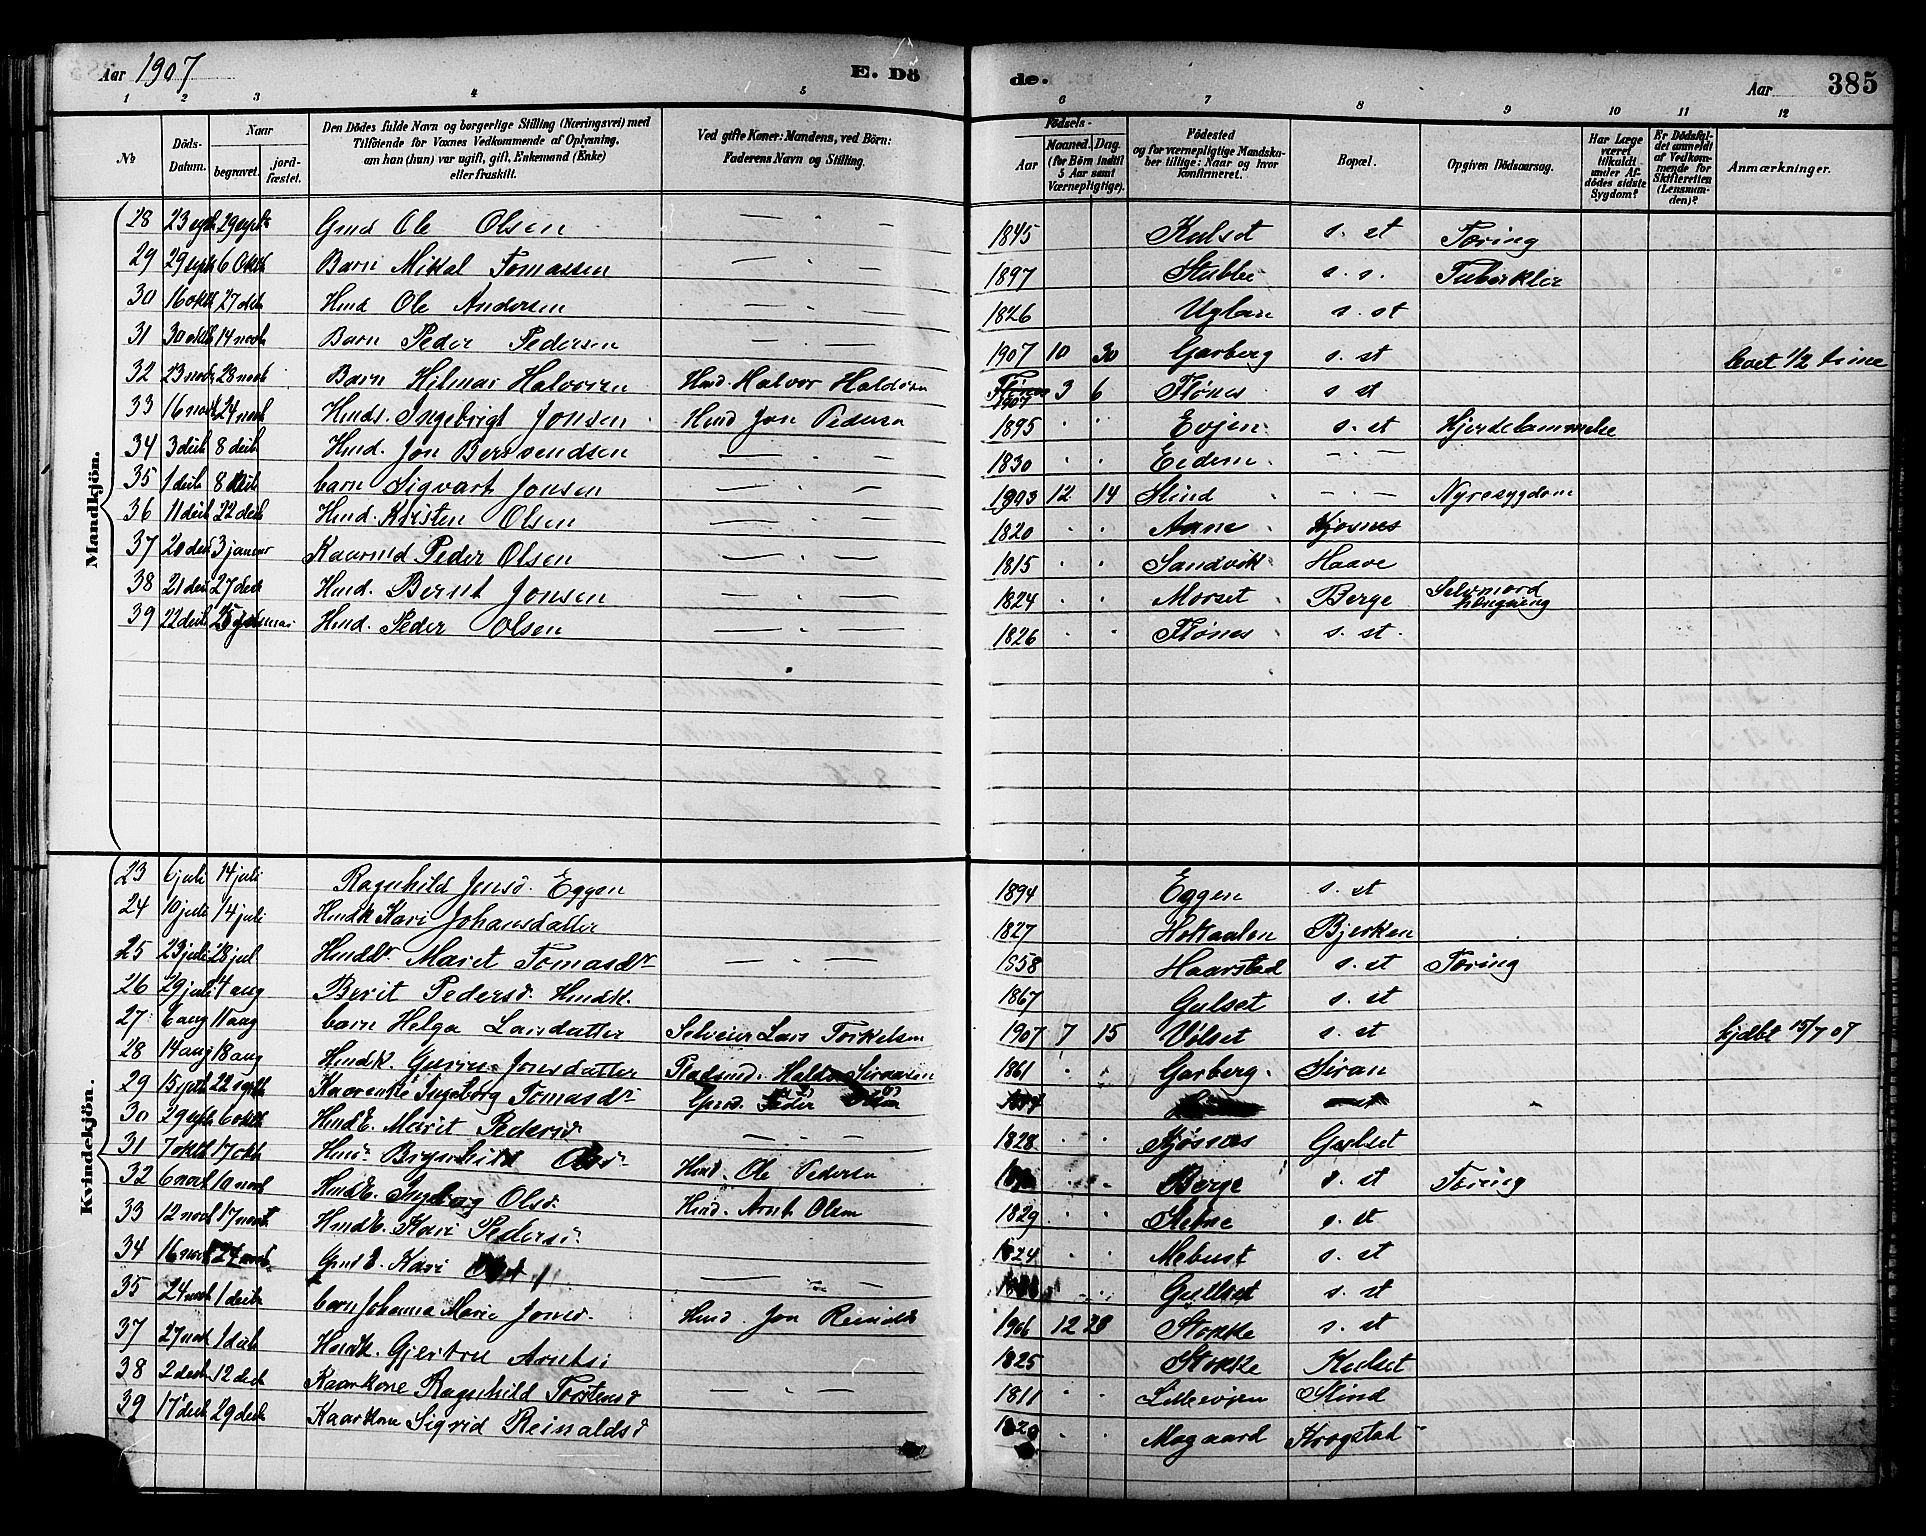 Aar 1907
E. Dö
de.
Aar
385
1 2 3 4 5 6 7 8 9 10 11 12
No
Döds-
Datum.
Naar
begravet.
jord-
fæstet.
Den Dödes fulde Navn og borgerlige Stilling (Næringsvei) med
Tilföiende for Voxnes Vedkommende af Oplysning,
om han (hun) var ugift, gift, Enkemand (Enke)
eller fraskilt.
Ved gifte Koner: Mandens, ved Börn:
Faderens Navn og Stilling.
Födsels-
Aar
Maaned. Dag.
(for Börn indtil
5 Aar samt
Værnepligtige).
Födested
og for værnepligtige Mandska-
ber tillige: Naar og hvor
konfirmeret.
Bopæl.
Opgiven Dödsaarsag.
Har Læge
været
tilkaldt
under Af-
dödes sidste
Sygdom?
Er Dödsfal-
det anmeldt
af Vedkom-
mende for
Skifteretten
(Lensman-
den)?
Anmærkninger.
Mandkjön.
28 23 septb 29 septb Gmd Ole Olsen 1845 Kulset s. st Tæring
29 29 septb 6 oktb Barn Mikal Tomassen 1897 Stubbe s. s. Tuberkler
30 16 oktb 27 oktb Hmd Ole Andersen 1826 Uglan s. st
31 30 oktb 14 novb Barn Peder Pedersen 1907 10 30 Garberg s. st levet 1/2 time
32 23 novb 28 novb Barn Hilmar Halvorsen Hmd. Halvor Haldorsen 1907 3 6 Flønes s. st
33 16 novb 24 novb Hmds. Ingebrigt Jonsen Hmd Jon Pedersen 1895 Evjen s. st Hjerdelammelse
34 3 decb 8 decb Hmd. Jon Berdvendsen 1830 Eidem
35 1 decb 8 decb barn Sigvart Jonsen 1903 12 14 Slind Nyresygdom
36 11 decb 22 decb Hmd. Kristen Olsen 1820 Aune Kjøsnes
37 20 decb 3 januar Kaarmd Peder Olsen 1815 Sandvik Haave
38 21 decb 27 decb Hmd. Bernt Jonsen 1824 Morset Berge Selvmord hængning
39 22 decb Hmd. Peder Olsen 1826 Flønes s. st.
Kvindekjön.
23 6 juli 14 juli Ragnhild Jonsd. Eggen 1894 Eggen s. st
24 10 juli 14 juli Hmdk Kari Johansdatter 1827 Holtaalen Bjerken
25 23 juli 28 jul Hmddr Maret Tomasdr 1858 Haarstad s. st Tæring
26 29 juli 4 aug Berit Pedersd. Hmdk. 1867 Gulset s. st
27 6 aug 11 aug barn Helga Larsdatter Selveier Lars Torkelsen 1907 7 15 Volset s. st hjdbt 15/7 07
28 14 aug 18 aug Hmdk. Guru Jonsdatter Pladsmd. 1861 Garberg Siran
29 15 septb 22 septb Kaarenke Ingeborg Tomasdr Gmd. Peder Olsen
30 29 septb 6 oktb HmdE. Marit Pedersd 1828 Kjøsnes Gulset
31 7 oktb 17 oktb Brynhild Olsdr Hmd. Ole Pedersen Berge s. st Tæring
32 6 novb 10 novb HmdE. Ingeborg Olsd. Hmd. Arnt Olsen 1829 s. st
33 12 novb 17 novb HmdE. Kari Pedersd. 1824 Mebust s. st
34 16 novb 24 novb GmdE. Kari Gullset s. st
35 24 novb 1 decb barn Johanna Marie Jonsd. Hmd. Jon Reinalds 1906 12 28 Stokke s. st
37 27 novb 1 decb Hmdk. Gjertru Arntsd 1825 Stokke Kulset
38 2 decb 12 decb Kaarkone Ragnhild Torstensd 1811 Lilleevjen Slind
39 17 decb 29 decb Kaarkone Sigrid Reinaldsd 1829 Mogaard Krogstad